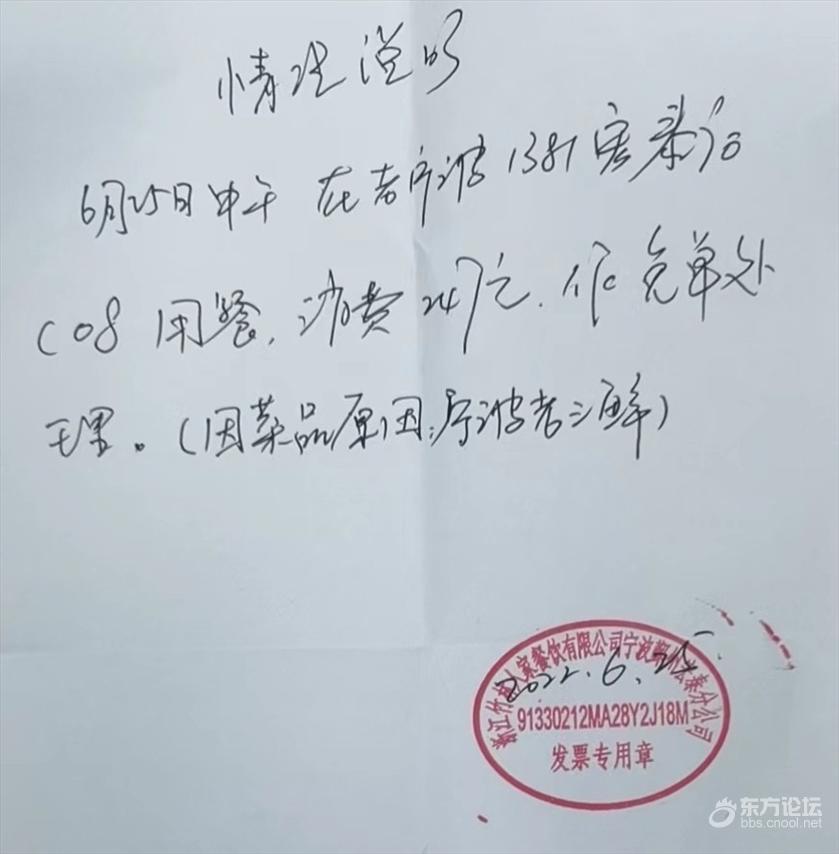 情况说明
6月25日中午 在老宁波1381宏泰店
C08 用餐,消费247元.作免单处
理。(因菜品原因:宁波老三鲜)
2022.6.25
餐饮有限公司宁波 泰分公司
91330212MA28Y2J18M
发票专用章
东方论坛
bbs.cnool.net